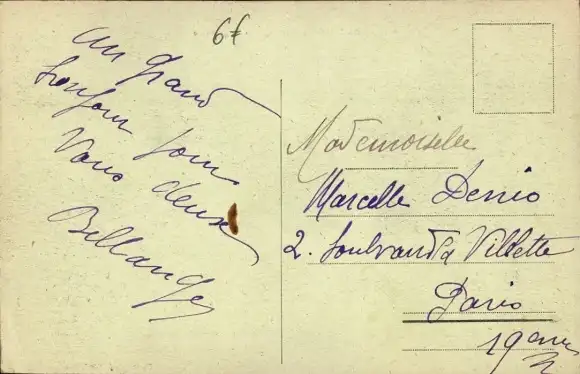 6F
un grand
bonjour pour
Vous deux
Bellanger
Mademoiselle
Marcelle Denis
2. boulvard d Villette
Paris
19em